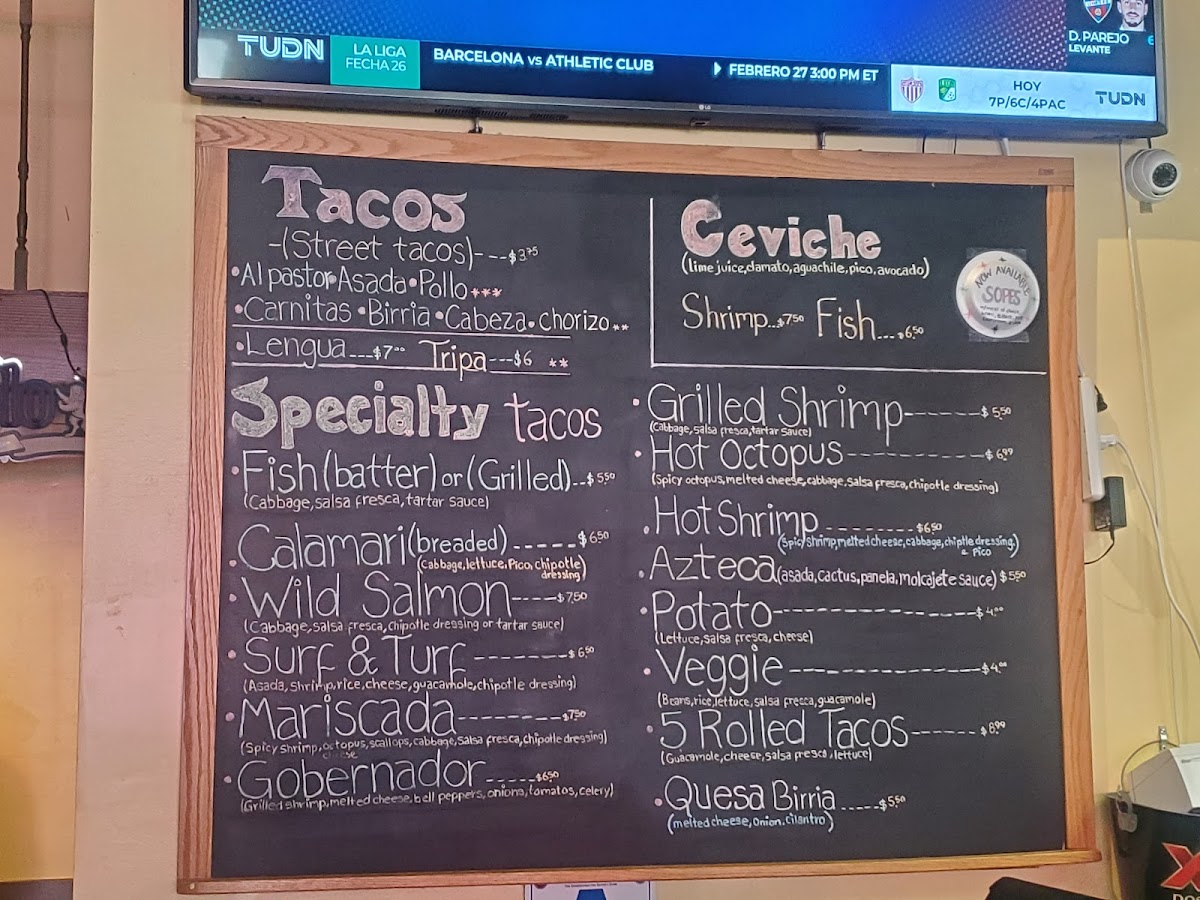 TUDN
LA LIGA
FECHA 26
BARCELONA vs ATHLETIC CLUB
FEBRERO 27 3:00 PM ET
D. PAREJO
LEVANTE
HOY
7P/6C/4PAC
TUDN
LG
Tacos
-(Street tacos)----$3.75
•Al pastor•Asada•Pollo***
•Carnitas •Birria •Cabeza. chorizo **
•Lengua---$7.00 Tripa---$6 **
Specialty tacos
•Fish (batter) or (Grilled)..$5.50
(Cabbage, salsa fresca, tartar sauce)
•Calamari (breaded) -----$6.50
(Cabbage, lettuce, Pico, chipotle
dressing)
•Wild Salmon----$7.50
(Cabbage, salsa fresca, chipotle dressing or tartar sauce)
•Surf & Turf --------$6.50
(Asada, shrimp, rice, cheese, guacamole, chipotle dressing)
•Mariscada---------$7.50
(Spicy shrimp, octopus, scallops, cabbage, salsa fresca, chipotle dressing)
cheese
•Gobernador.....$6.50
(Grilled shrimp, melted cheese, bell peppers, onions, tomatos, celery)
Ceviche
(lime juice, clamato, aguachile, pico, avocado)
Shrimp...$7.50 Fish....$6.50
NOW AVAILABLE
SOPES
•Grilled Shrimp-------$5.50
(Cabbage, salsa fresca, tartar sauce)
•Hot Octopus-----------$6.99
(Spicy octopus, melted cheese, cabbage, salsa fresca, chipotle dressing)
•Hot Shrimp --------$6.50
(Spicy shrimp, melted cheese, cabbage, chiptle dressing,)
& Pico
•Azteca (asada, cactus, panela, molcajete sauce) $5.50
•Potato----------------$4.00
(Lettuce, salsa fresca, cheese)
•Veggie---------------$4.00
(Beans, rice, lettuce, salsa fresca, guacamole)
•5 Rolled Tacos------$8.99
(Guacamole, cheese, salsa fresca, lettuce)
•Quesa Birria.....$5.50
(melted cheese, onion, cilantro)